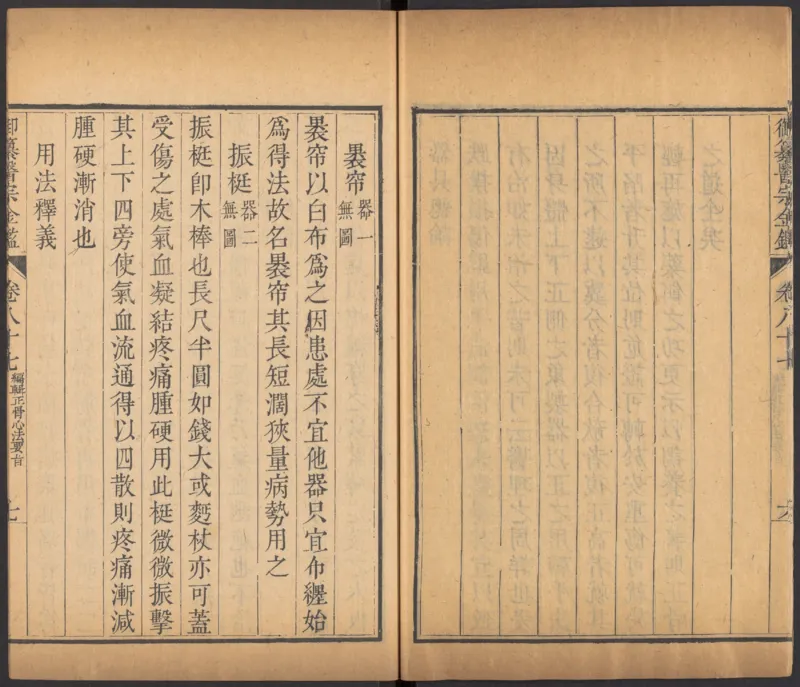 御纂醫宗金鑑 卷八十七
褁帘 器一 無圖
褁帘以白布爲之因患處不宜他器只宜布纏始
爲得法故名褁帘其長短濶狹量病勢用之
振梃 器二 無圖
振梃卽木棒也長尺半圓如錢大或麪杖亦可蓋
受傷之處氣血凝結疼痛腫硬用此梃微微振擊
其上下四旁使氣血流通得以四散則疼痛漸減
腫硬漸消也
用法釋義
御纂醫宗金鑑 卷八十七 編輯正骨心法要旨 七